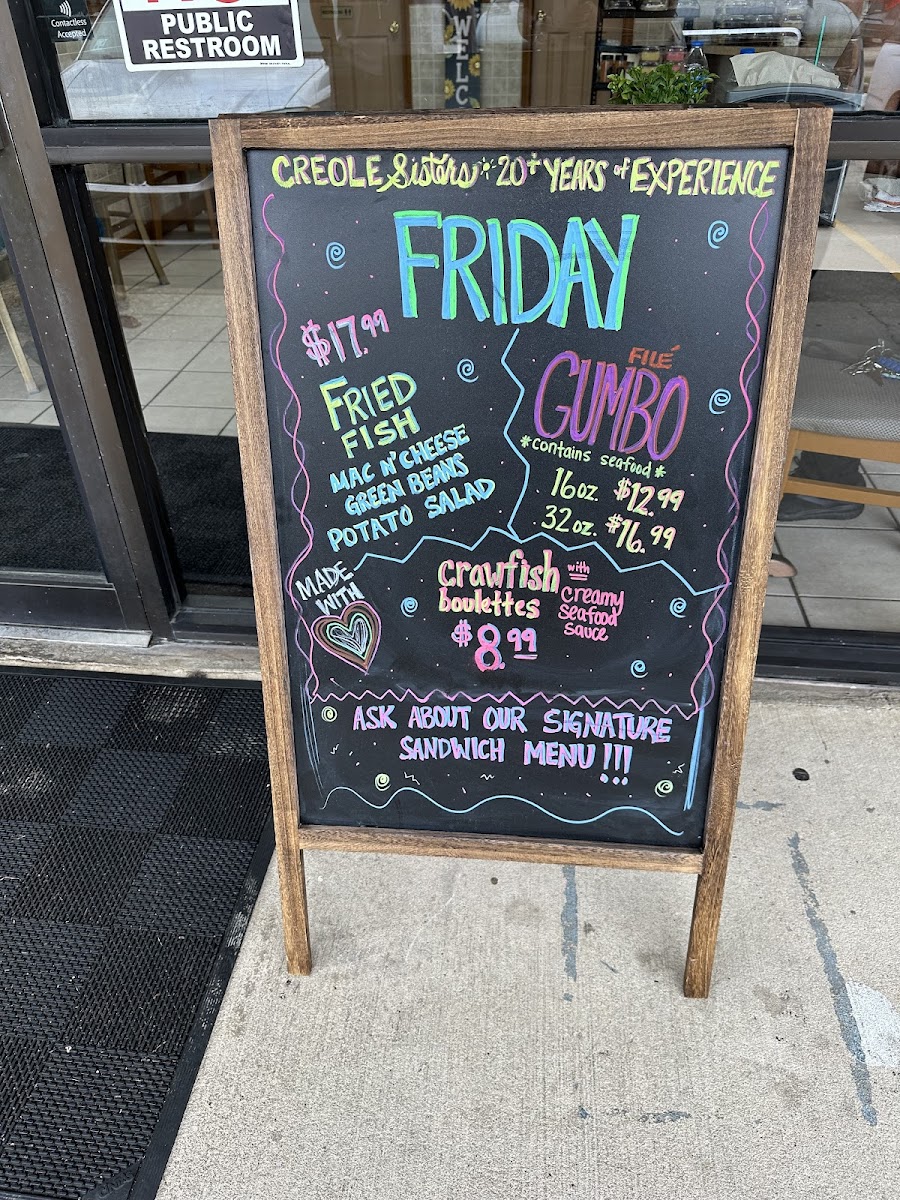 Contactless
Accepted
PUBLIC
RESTROOM
WELC
CREOLE Sisters 20+ YEARS of EXPERIENCE
FRIDAY
$17.99
FRIED
FISH
MAC N' CHEESE
GREEN BEANS
POTATO SALAD
FILÉ
GUMBO
*contains seafood*
16oz. $12.99
32oz. $16.99
MADE
WITH
crawfish
boulettes
with
creamy
seafood
sauce
$8.99
ASK ABOUT OUR SIGNATURE
SANDWICH MENU!!!